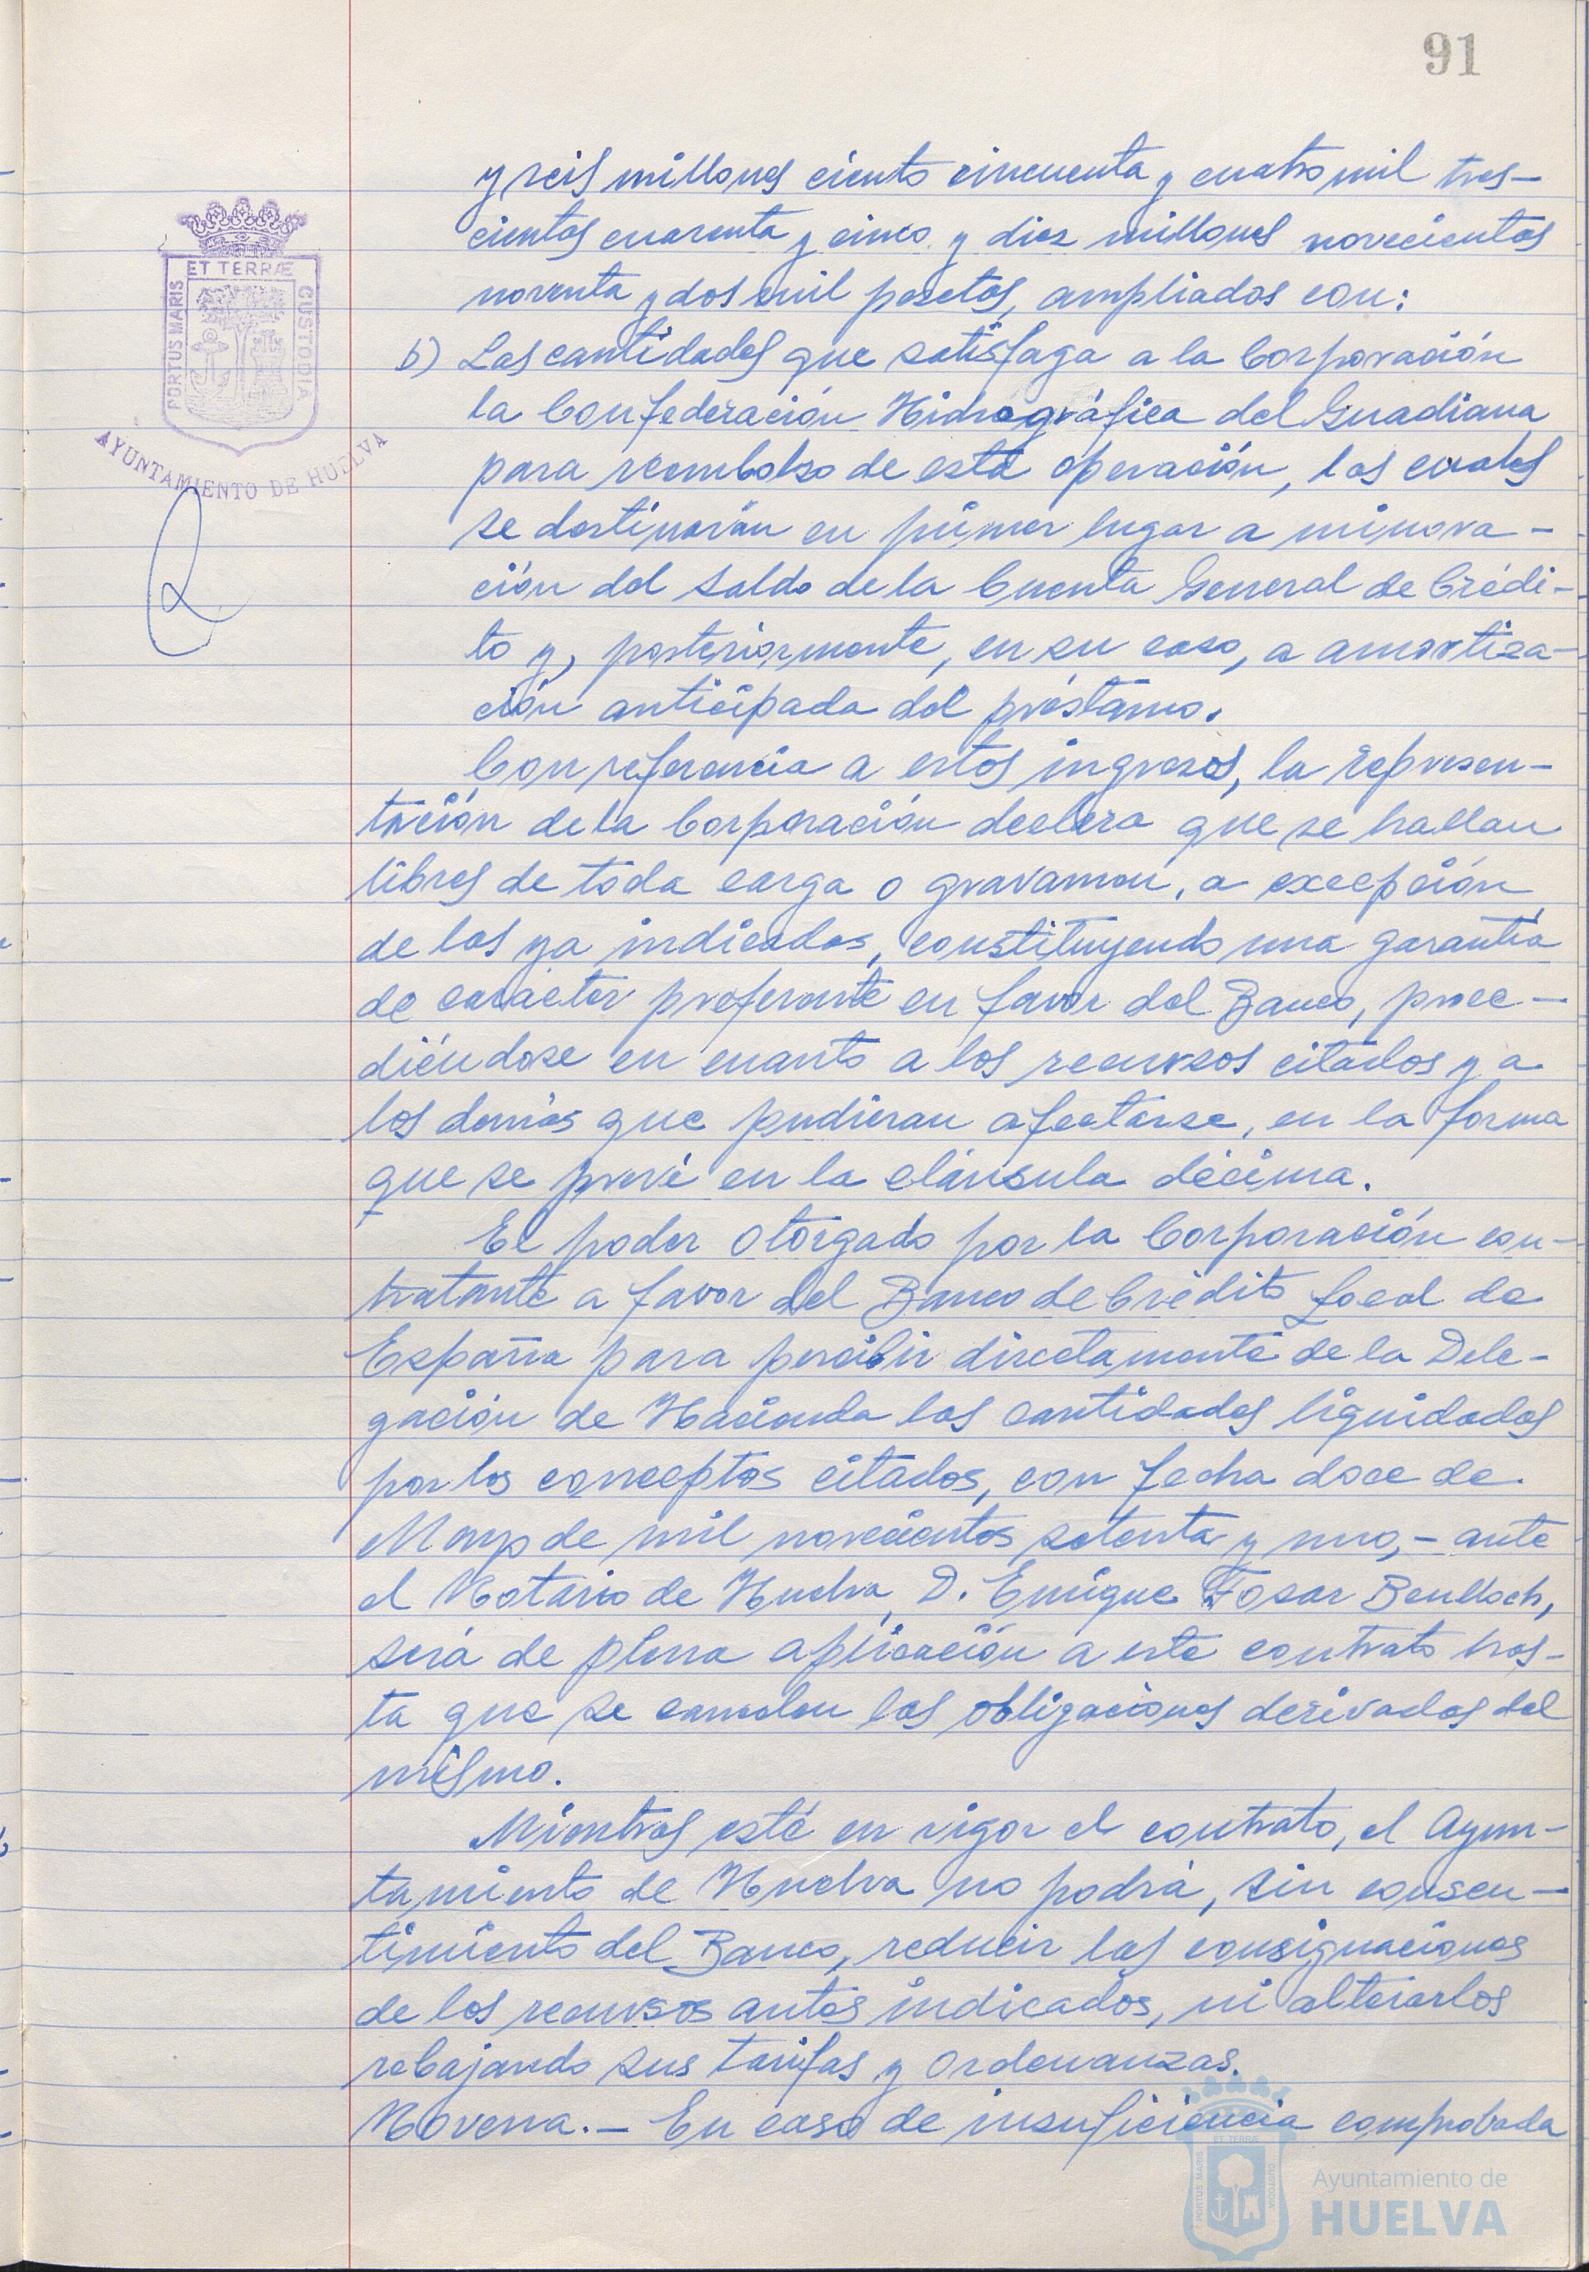 91
y seis millones ciento cincuenta y cuatro mil tres-
cientas cuarenta y cinco y diez millones novecientas
noventa y dos mil pesetas, ampliados con:
b) Las cantidades que satisfaga a la Corporación
la Confederación Hidrográfica del Guadiana
para reembolso de esta operación, las cuales
se destinarán en primer lugar a minora-
ción del saldo de la Cuenta General de Crédi-
to y, posteriormente, en su caso, a amortiza-
ción anticipada del préstamo.
Con referencia a estos ingresos, la represen-
tación de la Corporación declara que se hallan
libres de toda carga o gravamen, a excepción
de las ya indicadas, constituyendo una garantía
de carácter preferente en favor del Banco, proce-
diéndose en cuanto a los recursos citados y a
los demás que pudieran afectarse, en la forma
que se prevé en la cláusula décima.
El poder otorgado por la Corporación con-
tratante a favor del Banco de Crédito Local de
España para percibir directamente de la Dele-
gación de Hacienda las cantidades liquidadas
por los conceptos citados, con fecha doce de
Mayo de mil novecientos setenta y uno,- ante
el Notario de Huelva, D. Enrique Fosar Benlloch,
será de plena aplicación a este contrato has-
ta que se cancelen las obligaciones derivadas del
mismo.
Mientras esté en vigor el contrato, el Ayun-
tamiento de Huelva no podrá, sin consen-
timiento del Banco, reducir las consignaciones
de los recursos antes indicados, ni alterarlos
rebajando sus tarifas y Ordenanzas.
Novena.- En caso de insuficiencia comprobada
PORTUS MARIS ET TERRÆ CUSTODIA
AYUNTAMIENTO DE HUELVA
PORTUS MARIS ET TERRÆ CUSTODIA
Ayuntamiento de
HUELVA